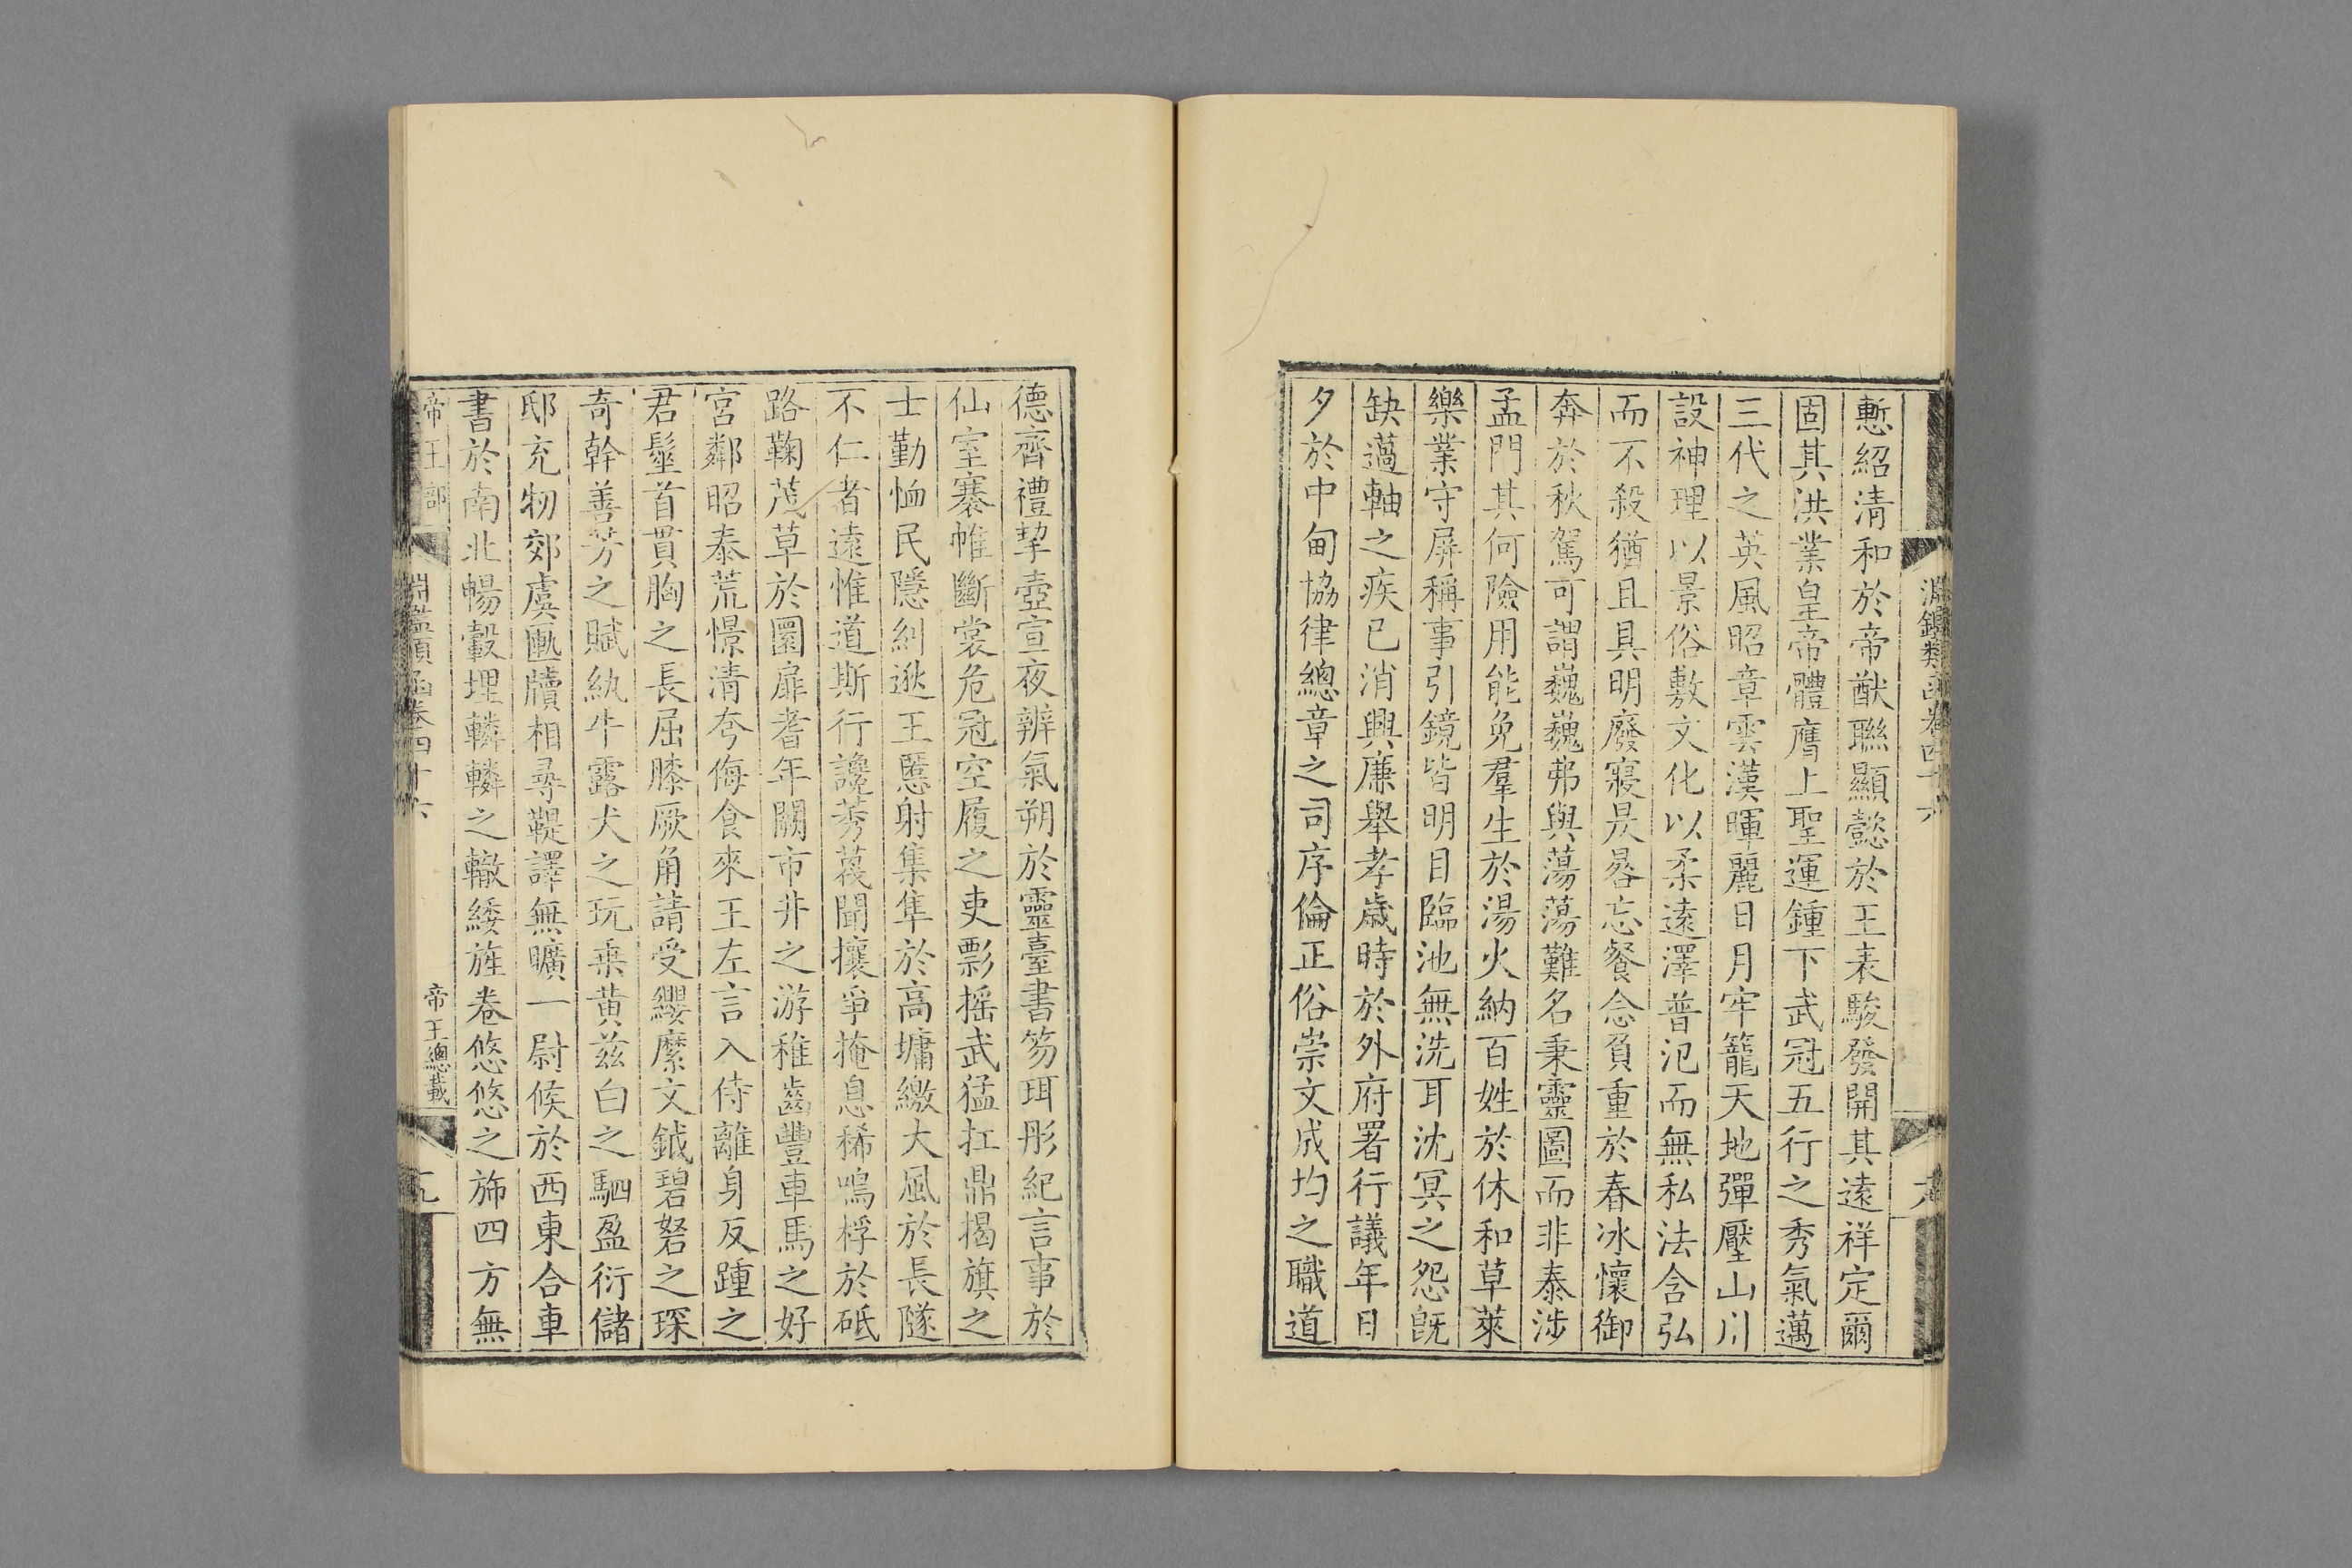 淵鑑類函卷四十六
慙紹清和於帝猷聯顯懿於王表駿發開其遠祥定爾
固其洪業皇帝體膺上聖運鍾下武冠五行之秀氣邁
三代之英風昭章雲漢暉麗日月牢籠天地彈壓山川
設神理以景俗敷文化以柔遠澤普氾而無私法含弘
而不殺猶且具明廢寢昃晷忘餐念負重於春冰懷御
奔於秋駕可謂巍巍弗與蕩蕩難名秉靈圖而非泰涉
孟門其何險用能免羣生於湯火納百姓於休和草萊
樂業守屏稱事引鏡皆明目臨池無洗耳沈冥之怨旣
缺薖軸之疾已消興廉舉孝歲時於外府署行議年日
夕於中甸協律總章之司序倫正俗崇文成均之職道
德齊禮挈壺宣夜辨氣朔於靈臺書笏珥彤紀言事於
仙室褰帷斷裳危冠空履之吏彯搖武猛扛鼎揭旗之
士勤恤民隱糾逖王慝射集隼於高墉繳大風於長隧
不仁者遠惟道斯行讒莠蔑聞攘爭掩息稀鳴桴於砥
路鞠茂草於圜扉耆年闕市井之游稚齒豐車馬之好
宮鄰昭泰荒憬清夸侮食來王左言入侍離身反踵之
君髽首貫胸之長屈膝厥角請受纓縻文鉞碧砮之琛
奇幹善芳之賦紈牛露犬之玩乘黃茲白之駟盈衍儲
邸充牣郊虞匭牘相尋鞮譯無曠一尉候於西東合車
書於南北暢轂埋轔轔之轍緌旌卷悠悠之旆四方無
帝王部
淵鑑類函卷四十六
帝王總載